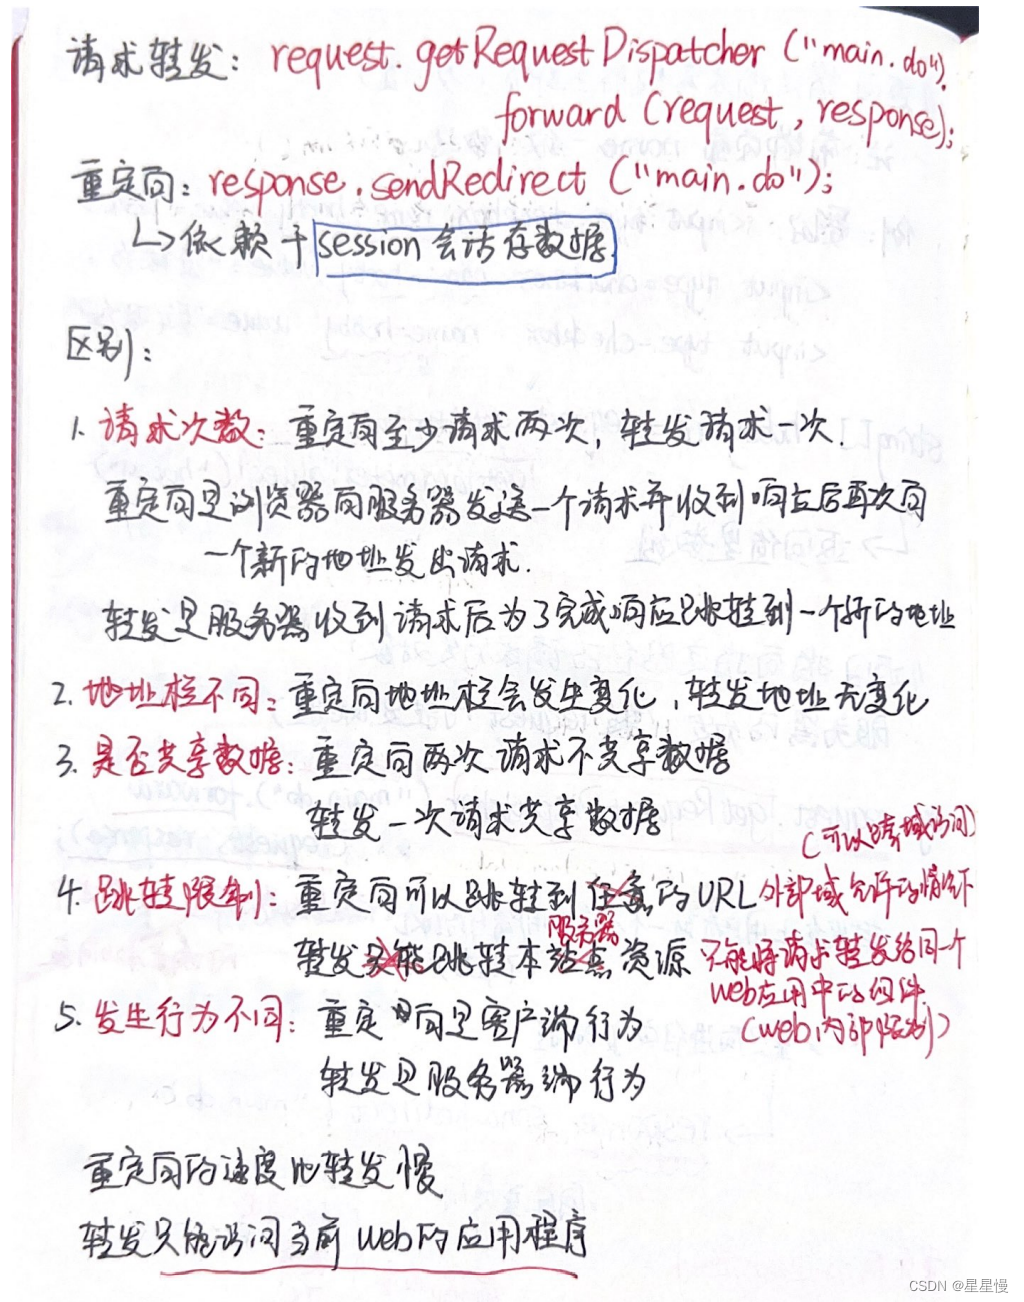 请求转发: request.getRequestDispatcher("main.do").
forward(request, response);
重定向: response.sendRedirect("main.do");
↳依赖于session会话存数据.
区别:
1. 请求次数: 重定向至少请求两次, 转发请求一次.
重定向是浏览器向服务器发送一个请求并收到响应后再次向
一个新的地址发出请求.
转发是服务器收到请求后为了完成响应跳转到一个新的地址
2. 地址栏不同: 重定向地址栏会发生变化, 转发地址无变化
3. 是否共享数据: 重定向两次请求不共享数据
转发一次请求共享数据
(可以跨域访问)
4. 跳转限制: 重定向可以跳转到任意的URL 外部域允许的情况下
服务器
转发只能跳转本站点资源 只能将请求转发给同个
web应用中的组件.
(web内部限制)
5. 发生行为不同: 重定向是客户端行为
转发是服务器端行为
重定向的速度比转发慢
转发只能访问当前web的应用程序
CSDN @星星慢